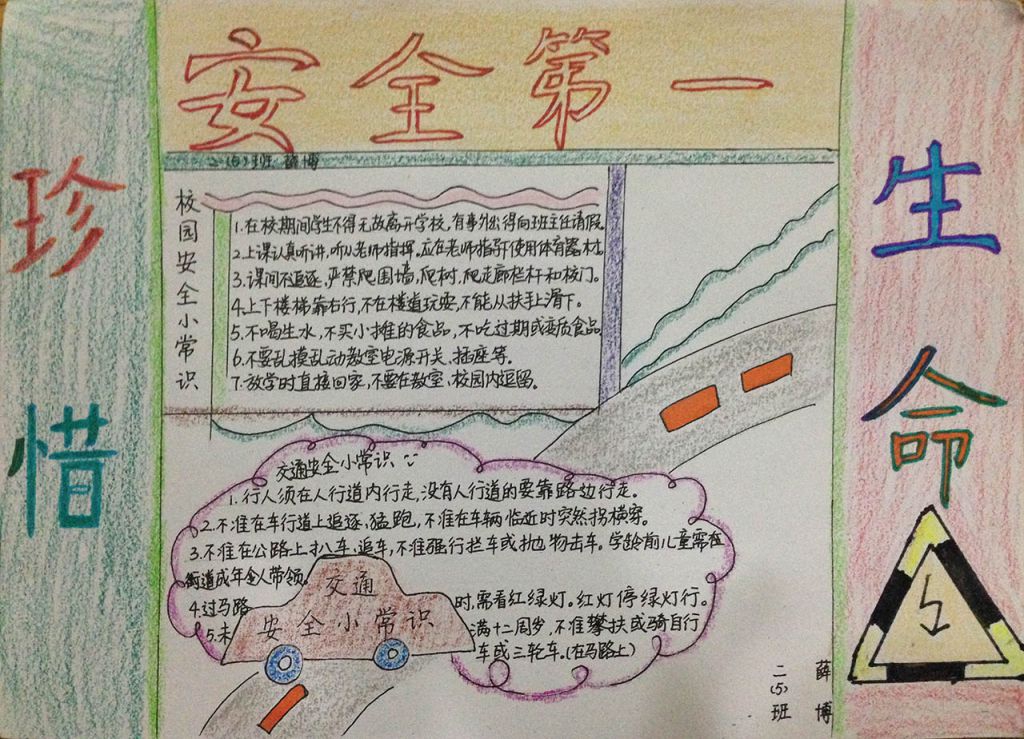 安全第一
二(5)班 薛博
珍惜
生命
校园安全小常识
1.在校期间学生不得无故离开学校,有事外出得向班主任请假.
2.上课认真听讲,听从老师指挥.应在老师指导使用体育器材.
3.课间不追逐,严禁爬围墙,爬树,爬走廊栏杆和校门。
4.上下楼梯靠右行,不在楼道玩耍,不能从扶手上滑下。
5.不喝生水,不买小摊的食品,不吃过期或变质食品
6.不要乱摸乱动教室电源开关、插座等。
7.放学时直接回家,不要在教室、校园内逗留。
交通安全小常识
1.行人须在人行道内行走,没有人行道的要靠路边行走。
2.不准在车行道上追逐、猛跑,不准在车辆临近时突然拐横穿。
3.不准在公路上扒车、追车,不准强行拦车或抛物击车。学龄前儿童需在
街道成年人带领。
4.过马路时,需看红绿灯。红灯停绿灯行。
5.未满十二周岁,不准攀扶或骑自行
车或三轮车.(在马路上)
交通
安全小常识
二(5)班
薛博